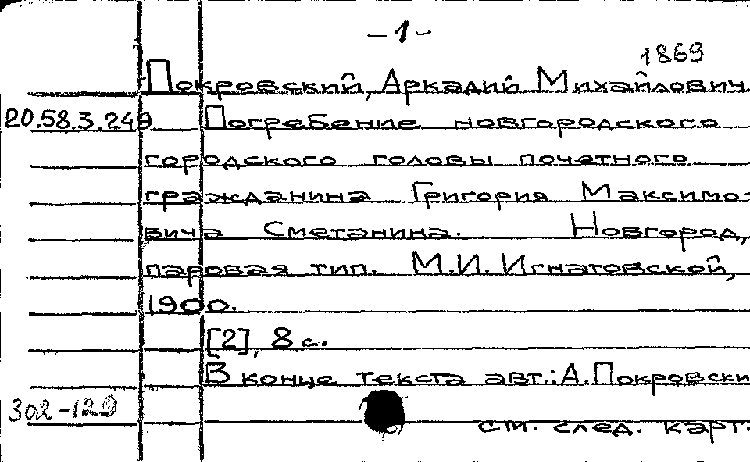 -1-
1869
Покровский, Аркадий Михайлович
20.58.3.249 Погребение новгородского
городского головы почетного
гражданина Григория Максимо-
вича Сметанина. Новгород,
паровая тип. М.И. Игнатовской,
1900.
[2], 8 с.
В конце текста авт.: А. Покровски
302-129
см. след. карт.